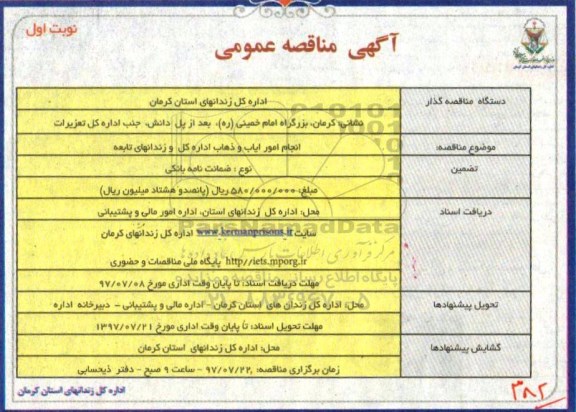 نوبت اول
آگهی مناقصه عمومی
دستگاه مناقصه گذار
اداره کل زندانهای استان کرمان
نشانی: کرمان، بزرگراه امام خمینی (ره)، بعد از پل دانش، جنب اداره کل تعزیرات
موضوع مناقصه:
انجام امور ایاب و ذهاب اداره کل و زندانهای تابعه
تضمین
نوع : ضمانت نامه بانکی
مبلغ: ۵۸۰/۰۰۰/۰۰۰ ریال (پانصدو هشتاد میلیون ریال)
دریافت اسناد
محل: اداره کل زندانهای استان، اداره امور مالی و پشتیبانی
سایت www.kermanprisons.ir اداره کل زندانهای کرمان
http//iets.mporg.ir پایگاه ملی مناقصات و حضوری
مهلت دریافت اسناد: تا پایان وقت اداری مورخ ۹۷/۰۷/۰۸
تحویل پیشنهادها
محل: اداره کل زندان های استان کرمان - اداره مالی و پشتیبانی - دبیرخانه اداره
مهلت تحویل اسناد: تا پایان وقت اداری مورخ ۱۳۹۷/۰۷/۲۱
گشایش پیشنهادها
محل: اداره کل زندانهای استان کرمان
زمان برگزاری مناقصه: ۹۷/۰۷/۲۲ - ساعت ۹ صبح - دفتر ذیحسابی
اداره کل زندانهای استان کرمان
۳۸۲
ParsNamadData
پایگاه اطلاع رسانی مناقصه و مزایده